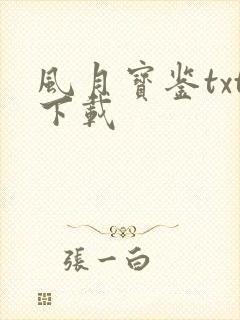 風月寶鉴txt
下載
張一白